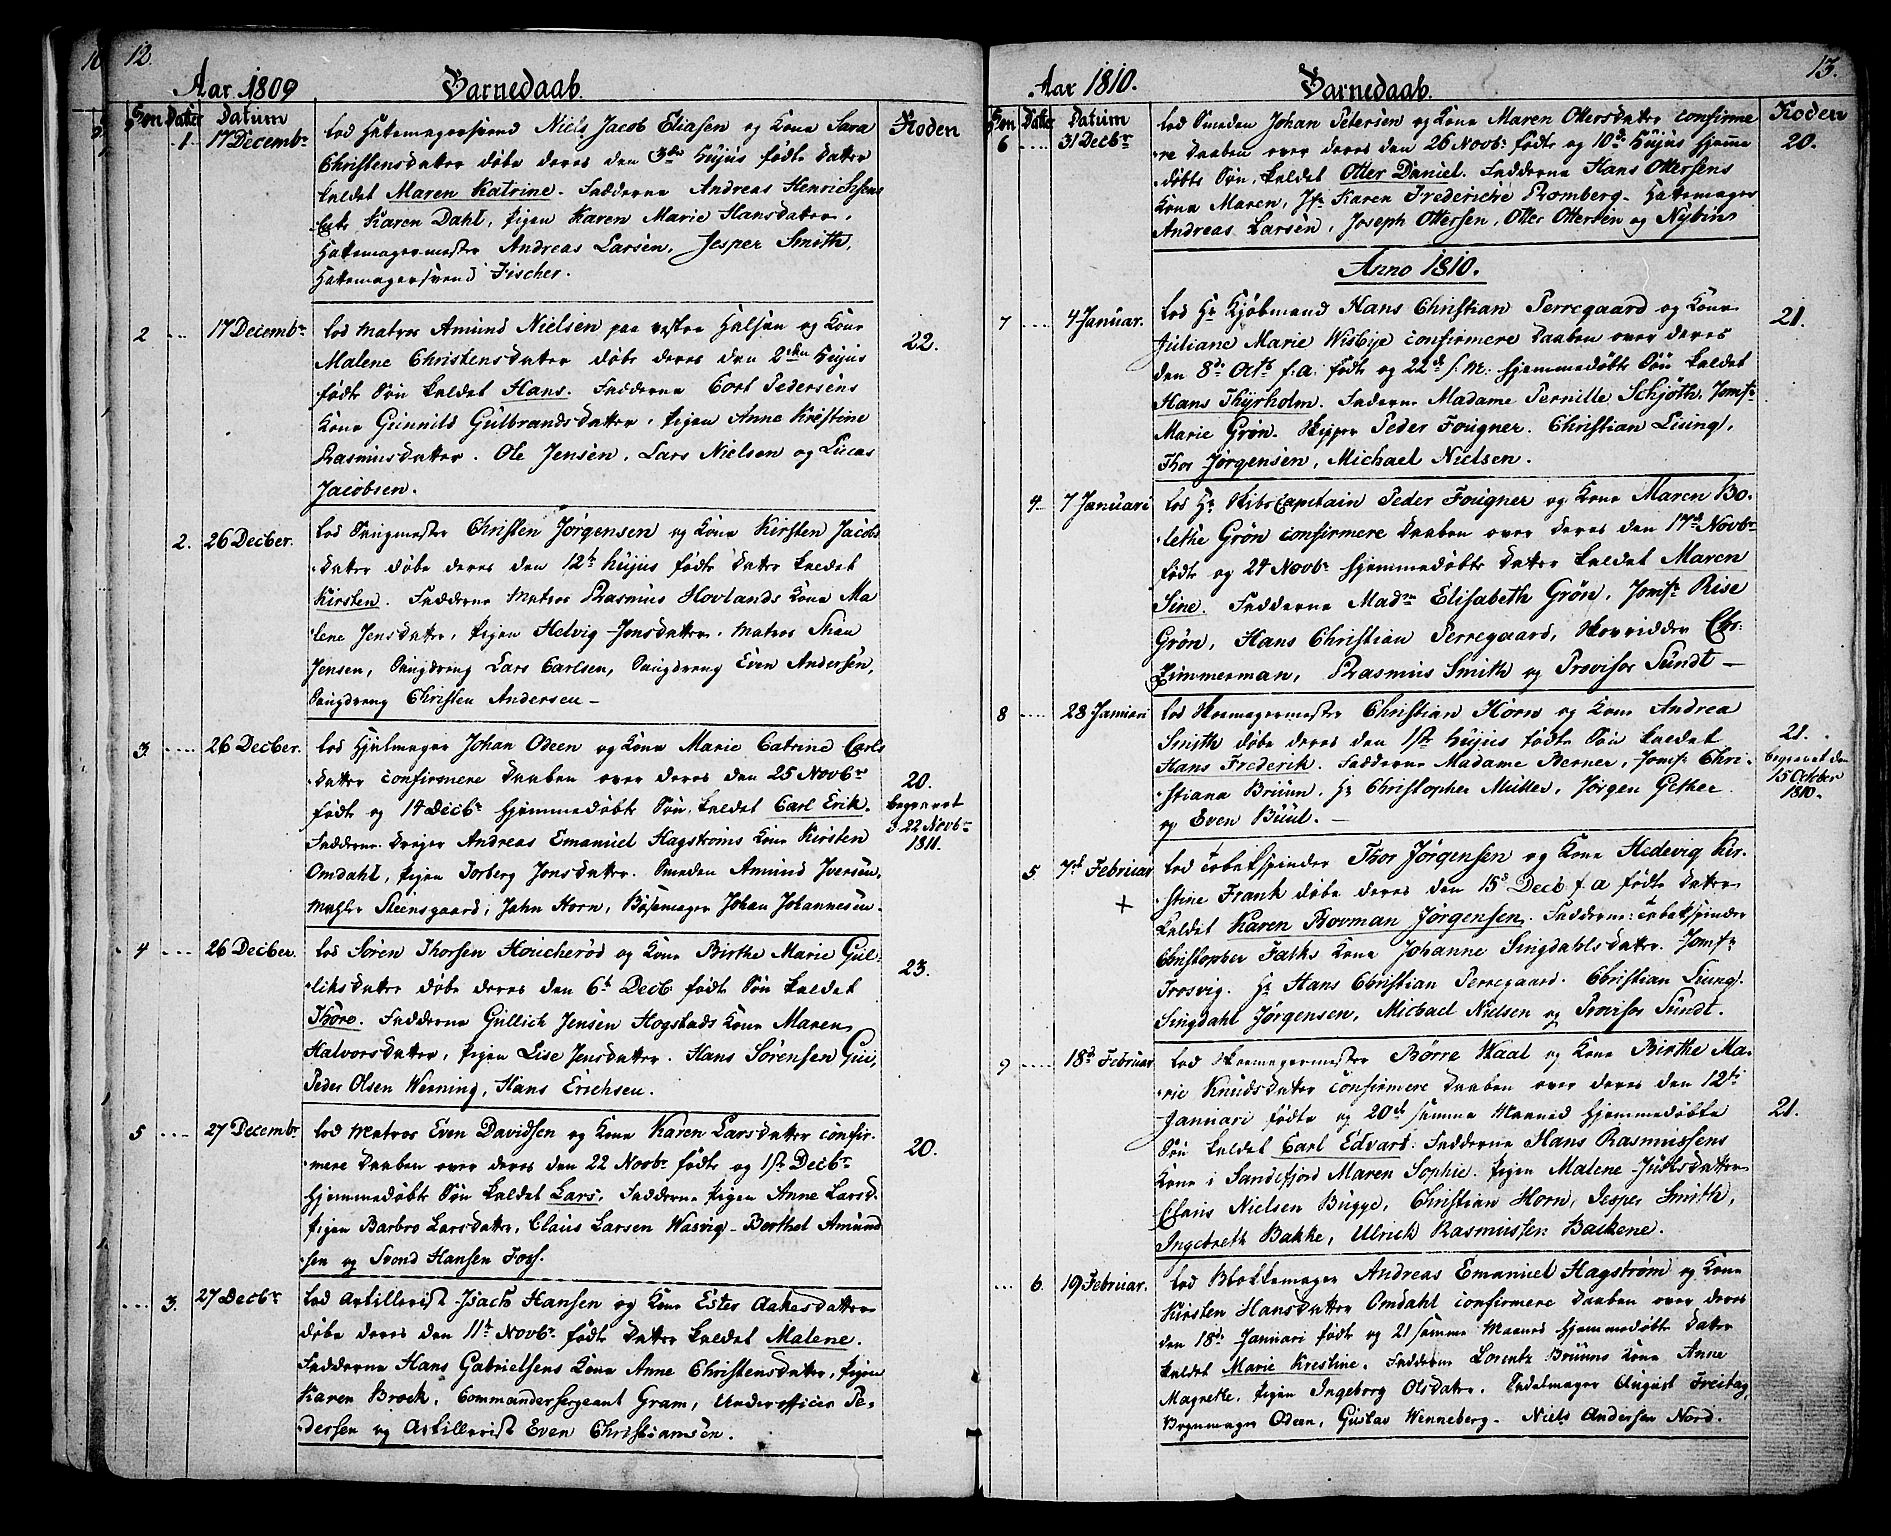 12.
Aar 1809 Barnedaab.
Søn Datter Datum Koden
1. 17 Decembr lod Hattemagersvend Niels Jacob Eliasen og Kone Sara
Christensdatter døbe deres den 3die hujus fødte Datter
kaldet Maren Katrine. Fadderne Andreas Henrichsens
Karen Dahl, Pigen Karen Marie Hansdatter,
Hattemagermester Andreas Larsen, Jesper Smith,
Hattemagersvend Fischer.
2 17 Decembr lod Matros Amund Nielsen paa vestre Halsen og Kone 22.
Malene Christensdatter døbe deres den 2den hujus
fødte Søn kaldet Hans. Fadderne Cort Pedersens
Kone Gunnild Gulbrandsdatter, Pigen Anne Kristine
Rasmusdatter. Ole Jensen, Lars Nielsen og Lucas
Jacobsen.
2. 26 Decber. lod Christen Jørgensen og Kone Kirsten Jacobs
datter døbe deres den 12t hujus fødte Datter kaldet
Kirsten. Fadderne Matros Rasmus Hovlands Kone Ma
lene Jensdatter, Pigen Helvig Jonsdatter. Matros
Jensen, Lars Carlsen, Even Andersen,
Christen Andersen –
3. 26 Decber. lod Hjulmager Johan Odeen og Kone Marie Catrine Carls
datter confirmere Daaben over deres den 25 Novbr 20.
fødte og 14 Decbr hjemmedøbte Søn, kaldet Carl Erik. begravet
Fadderne Andreas Emanuel Hagstrøms Kone Kirsten d. 22 Novbr
Omdahl, Pigen Torberg Jonsdatter. Smeden Amund Iversen, 1811.
Mahler Steensgaard, John Horn, Bøsemager Johan Johannesen.
4 26 Decber. lod Søren Thorsen Houcherød og Kone Birthe Marie Gul- 23.
liksdatter døbe deres den 6t Decb fødte Søn kaldet
Thore. Fadderne Gullich Jensen Hogstads Kone Maren
Halvorsdatter, Pigen Lise Jensdatter. Hans Sørensen Gui,
Peder Olsen Werning, Hans Erichsen.
5 27 Decembr lod Matros Even Davidsen og Kone Karen Larsdatter confir- 20.
mere Daaben over deres den 22 Novbr fødte og 1st Decbr
hjemmedøbte Søn kaldet Lars. Fadderne Pigen Anne Larsd.
Pigen Barbro Larsdatter, Claus Larsen Wasvig – Berthel Amund
sen og Svend Hansen Foss.
3. 27 Decbr lod Artillerist Isach Hansen og Kone Ester Aakesdatter
døbe deres den 11t Novbr fødte Datter kaldet Malene.
Fadderne Hans Gabrielsens Kone Anne Christensdatter, Pigen
Karen Brock, Commandersergeant Gram, Underofficer Pe-
dersen og Artillerist Even Christiansen.
13.
Aar 1810. Barnedaab.
Søn Datter Datum Koden
6 31 Decbr lod Smeden Johan Petersen og Kone Maren Ottersdatter confirme 20.
re Daaben over deres den 26 Novbr fødte og 10de hujus hjemme
døbte Søn, kaldet Otter Daniel. Fadderne Hans Ottersens
Kone Maren, Jfr Karen Frederiche Romberg. Hattemager
Andreas Larsen, Joseph Ottersen, Otter Ottersen og
Anno 1810.
7 4 Januar. lod Hr Kjøbmand Hans Christian Perregaard og Kone 21.
Juliane Marie Wisbye confirmere Daaben over deres
den 8de Octbr f: a. fødte og 22de s: M: hjemmedøbte Søn kaldet
Hans Thyrholm. Fadderne Madame Pernille Schjøth, Jomfr
Marie Grøn. Skipper Peder Fougner. Christian Liung,
Thor Jørgensen, Michael Nielsen.
4 7 Januari lod Hr Skibscapitain Peder Fougner og Kone Maren Bo-
lethe Grøn confirmere Daaben over deres den 17de Novbr
fødte og 24 Novbr hjemmedøbte Datter kaldet Maren
Sine. Fadderne Madme Elisabeth Grøn, Jomfr Rise
Grøn, Hans Christian Perregaard, Skovridder Chr:
Zimmerman, Rasmus Smith og Provisor Sundt –
8 28 Januari lod Skomagermester Christian Horn og Kone Andrea 21.
Smith døbe deres den 1ste hujus fødte Søn kaldet begravet den
Hans Frederik. Fadderne Madame Berner, Jomfr Chri- 15 October
stiana Bruun, Hr Christopher Müller, Jørgen Gether 1810.
og Even Buul. –
5 7d Februar lod Tobakspinder Thor Jørgensen og Kone Hedevig Kir-
+ stine Frank døbe deres den 15d Decb f. a fødte Datter
kaldet Karen Rovman Jørgensen. Fadderne: Tobakspinder
Christopher Falks Kone Johanne Singdahlsdatter. Jomfr
Trosvig. Hr Hans Christian Perregaard. Christian Liung.
Singdahl Jørgensen, Michael Nielsen og Provisor Sundt.
9 18d Februar lod Skomagermester Børre Waal og Kone Birthe Ma-
rie Knudsdatter confirmere Daaben over deres den 12te
Januari fødte og 20de samme Maaned hjemmedøbte 21.
Søn kaldet Carl Edvart. Fadderne Hans Rasmussens
Kone i Sandefjord Maren Sophie. Pigen Malene Juulsdatter
Claus Nielsen Bugge, Christian Horn, Jesper Smith,
Ingebreth Bakke, Ulrich Rasmussen Balkene.
6. 19 Februar. lod Blokkemager Andreas Emanuel Hagstrøm og Kone
Kirsten Hansdatter Omdahl confirmere Daaben over deres
den 18de Januari fødte og 21 samme Maaned hjemmedøbte Datter
kaldet Marie Krestine. Fadderne Lorentz Bruuns Kone Anne
Magrette, Pigen Ingeborg Olsdatter. Sadelmager August Freitag,
Odeen, Gustav Wenneberg – Niels Andersen Nord.